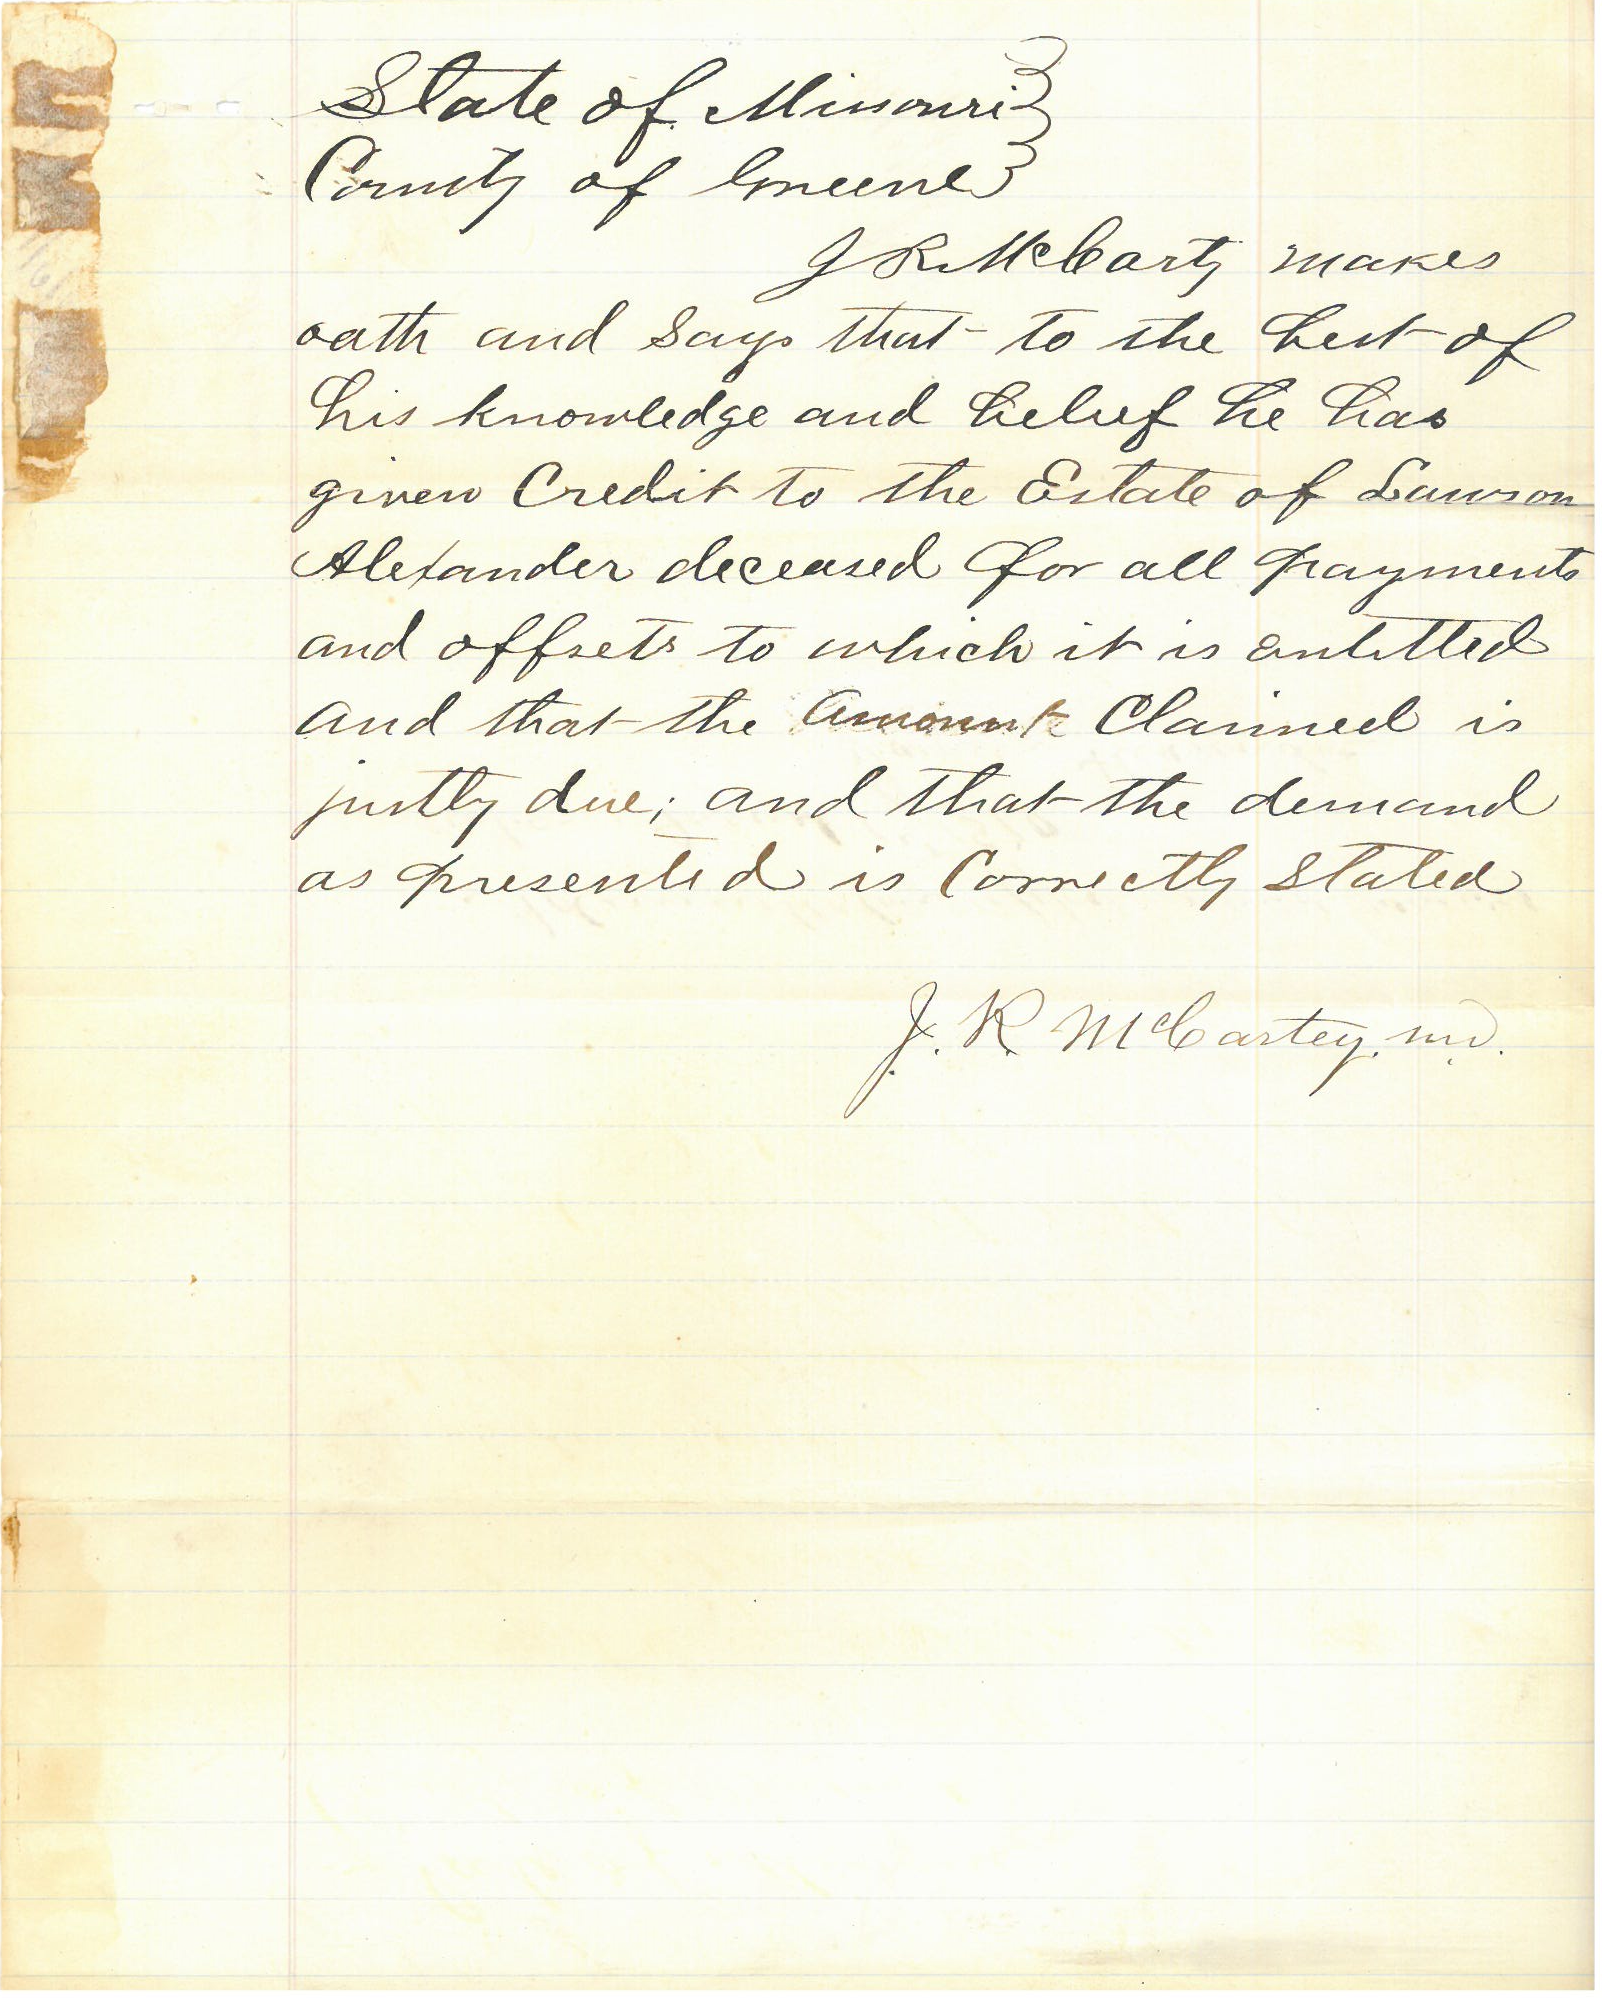 State of Missouri }
County of Greene }
J R McCarty makes
oath and says that to the best of
his knowledge and belief he has
given Credit to the Estate of Lawson
Alexander deceased for all payments
and offsets to which it is entitled
and that the amount Claimed is
justly due; and that the demand
as presented is Correctly Stated
J. R. McCartey. M.D.